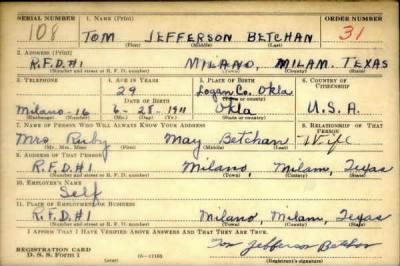 SERIAL NUMBER 1. NAME (Print) ORDER NUMBER
108 TOM JEFFERSON BETCHAN 31
(First) (Middle) (Last)
2. ADDRESS (Print)
R.F.D.#1 MILANO, MILAM. TEXAS
(Number and street or R. F. D. number) (Town) (County) (State)
3. TELEPHONE 4. AGE IN YEARS 5. PLACE OF BIRTH 6. COUNTRY OF CITIZENSHIP
29 Logan Co. Okla
DATE OF BIRTH (Town or county)
Milano-16 6-28-1911 Okla U.S.A.
(Exchange) (Number) (Mo.) (Day) (Yr.) (State or country)
7. NAME OF PERSON WHO WILL ALWAYS KNOW YOUR ADDRESS 8. RELATIONSHIP OF THAT PERSON
Mrs Ruby May Betchan Wife
(Mr., Mrs., Miss) (First) (Middle) (Last)
9. ADDRESS OF THAT PERSON
R.F.D.#1 Milano, Milam, Texas
(Number and street or R. F. D. number) (Town) (County) (State)
10. EMPLOYER'S NAME
Self
11. PLACE OF EMPLOYMENT OR BUSINESS
R.F.D.#1 Milano, Milam, Texas
(Number and street or R. F. D. number) (Town) (County) (State)
I AFFIRM THAT I HAVE VERIFIED ABOVE ANSWERS AND THAT THEY ARE TRUE.
REGISTRATION CARD Tom Jefferson Betchan
D. S. S. FORM 1 (Registrant's signature)